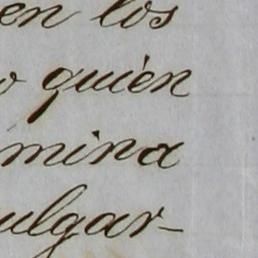 en los
o quien
mina
ulgar-